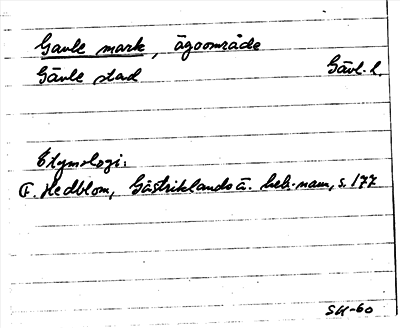 Gavle mark, ägoområde
Gävle stad Gävl. l.
Etymologi:
F. Hedblom, Gästriklands ä. beb. namn, s. 177
SK-60